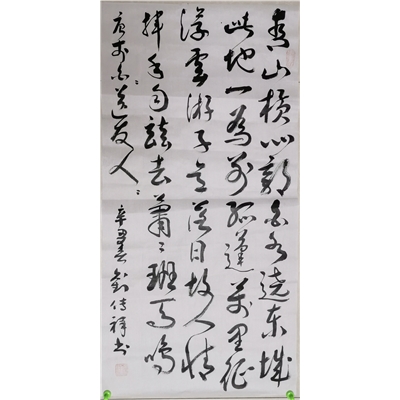 青山横北郭白水遶东城
此地一為别孤蓬萬里征
浮雲游子意落日故人情
挥手自兹去萧〻班马鸣
唐李白送友人
辛丑春刘传祥书